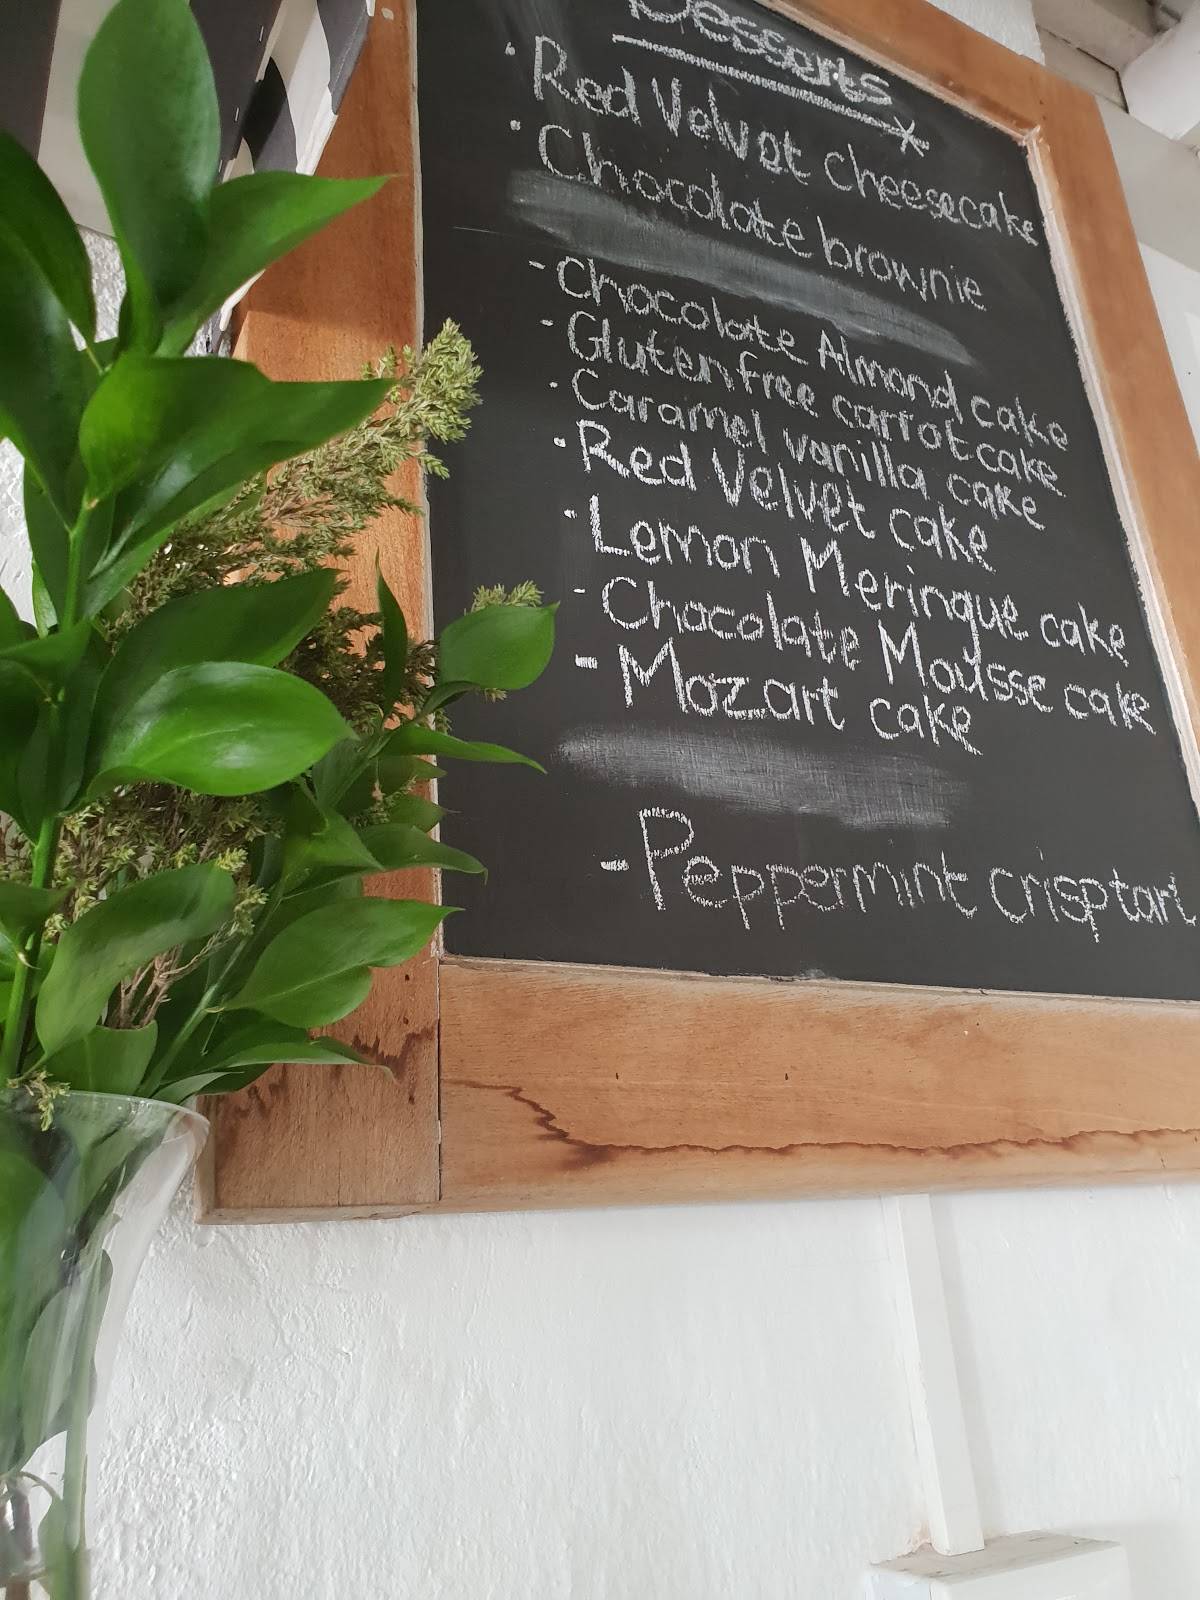 Desserts
· Red Velvet cheesecake
· Chocolate brownie
- Chocolate Almond cake
· Gluten free carrot cake
· Caramel vanilla cake
· Red Velvet cake
· Lemon Meringue cake
- Chocolate Mousse cake
- Mozart cake
- Peppermint crisp tart